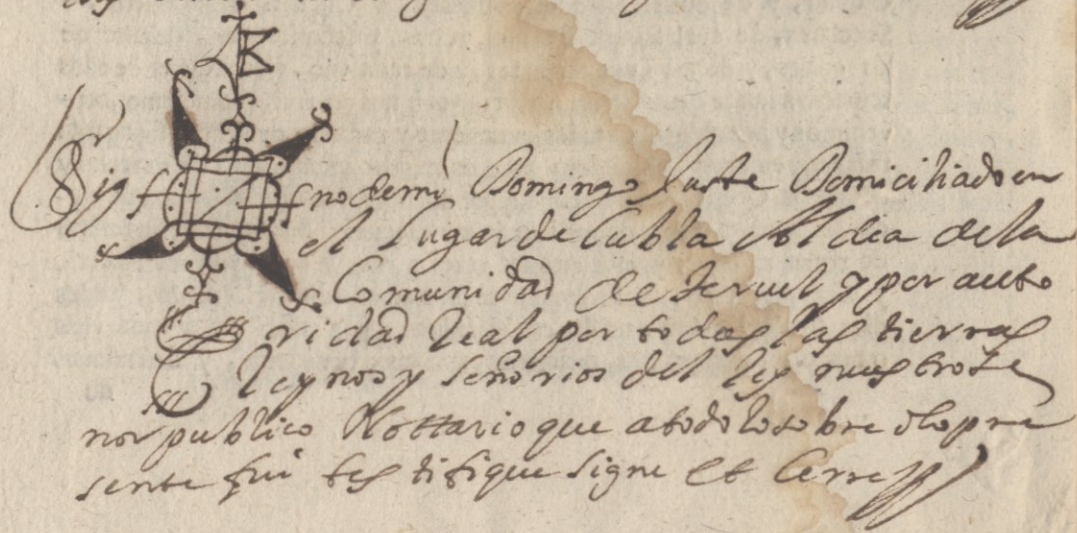 Sig no de mi Domingo Domiciliado en
el Lugar de Cubla Aldea de la
Comunidad de Teruel y por aucto
ridad Real por todas las tierras
Reynos y señorios del Rey nuestro Se
ñor publico Nottario que a todo lo sobre dho pre
sente fui testifique signe et Cerre